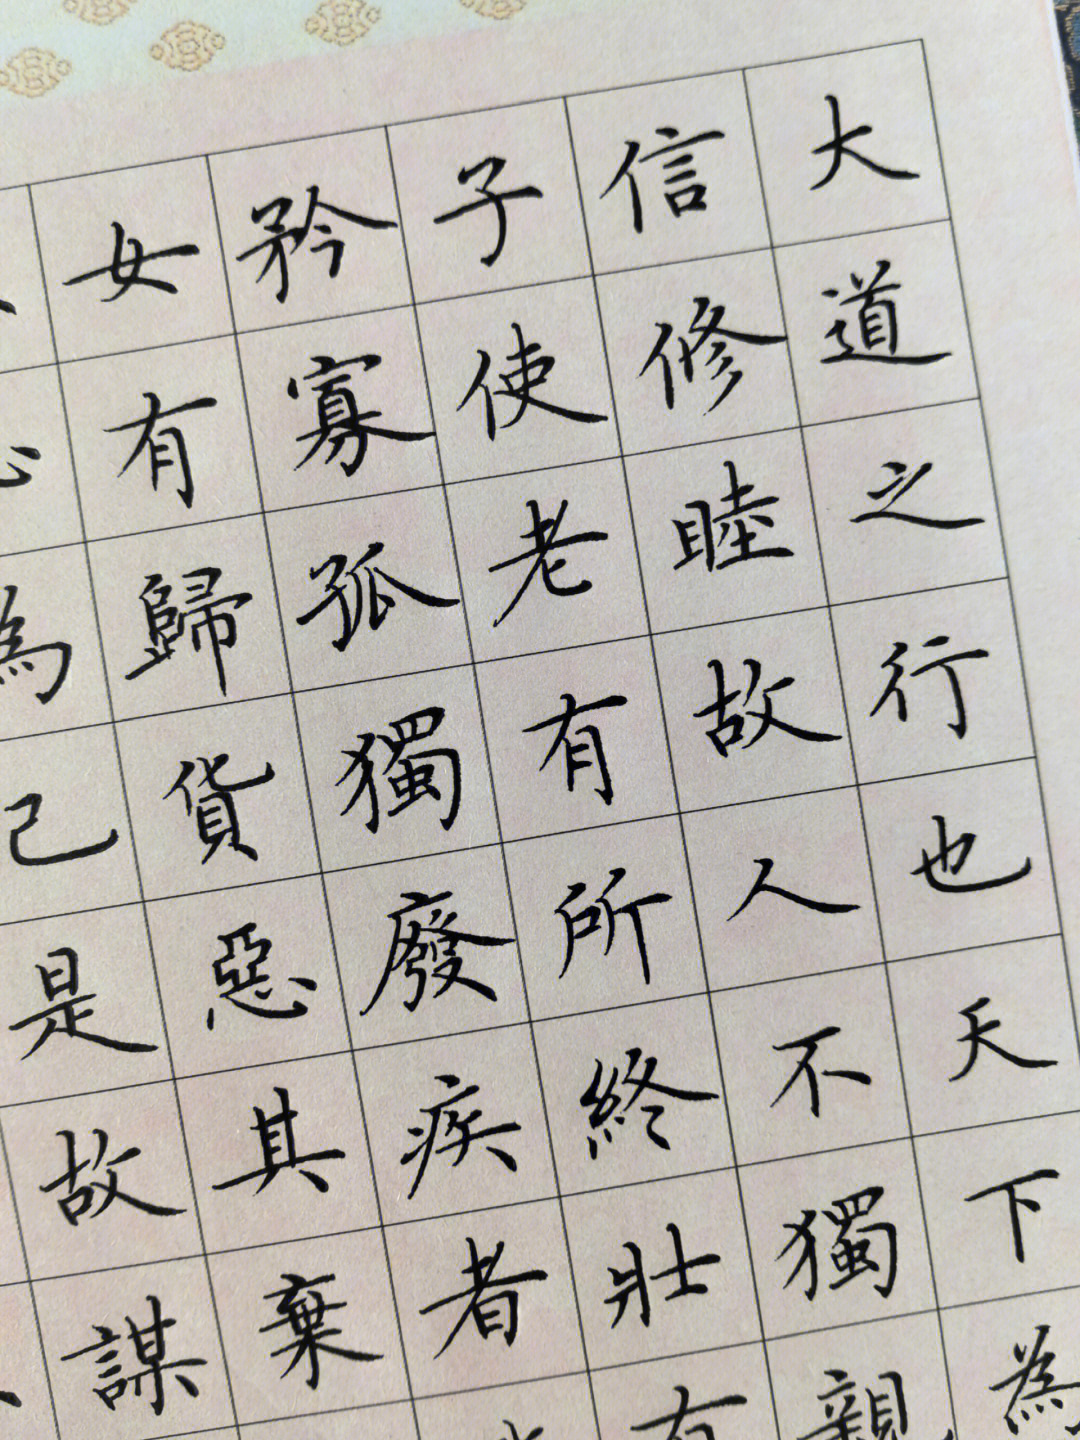 大道之行也天下為
信修睦故人不獨親
子使老有所終壯有
矜寡孤獨廢疾者
女有歸貨惡其棄
故謀
為己是